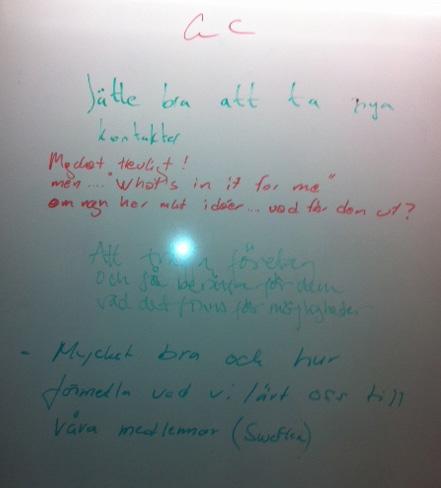 Jätte bra att ta nya
kontakter
Mycket trevligt!
men.... "What's in it for me"
om man har mkt idéer... vad får dom ut?
Att företag
och så berätta för dem
vad det finns för möjligheter
- Mycket bra och hur
förmedla vad vi lärt oss till
våra medlemmar (Swefica)